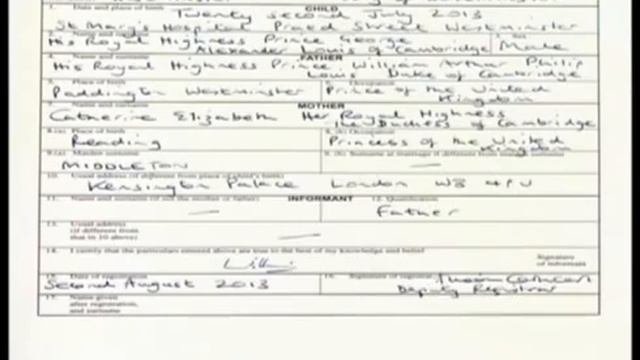 1. Date and place of birth CHILD
Twenty second July 2013
St Mary's Hospital Praed Street Westminster
2. Name and surname 3. Sex
His Royal Highness Prince George
Alexander Louis of Cambridge Male
4. Name and surname FATHER
His Royal Highness Prince William Arthur Philip
Louis Duke of Cambridge
5. Place of birth 6. Occupation
Paddington Westminster Prince of the United
Kingdom
7. Name and surname MOTHER
Catherine Elizabeth Her Royal Highness
the Duchess of Cambridge
8.(a) Place of birth 8.(b) Occupation
Reading Princess of the United
Kingdom
9.(a) Maiden surname 9.(b) Surname at marriage if different from maiden surname
MIDDLETON
10. Usual address (if different from place of child's birth)
Kensington Palace London W8 4PU
INFORMANT
11. Name and surname (if not the mother or father) 12. Qualification
Father
13. Usual address
(if different from
that in 10 above)
14. I certify that the particulars entered above are true to the best of my knowledge and belief
Signature
of informant
15. Date of registration 16. Signature of registrar
Second August 2013
Deputy Registrar
17. Name given
after registration,
and surname